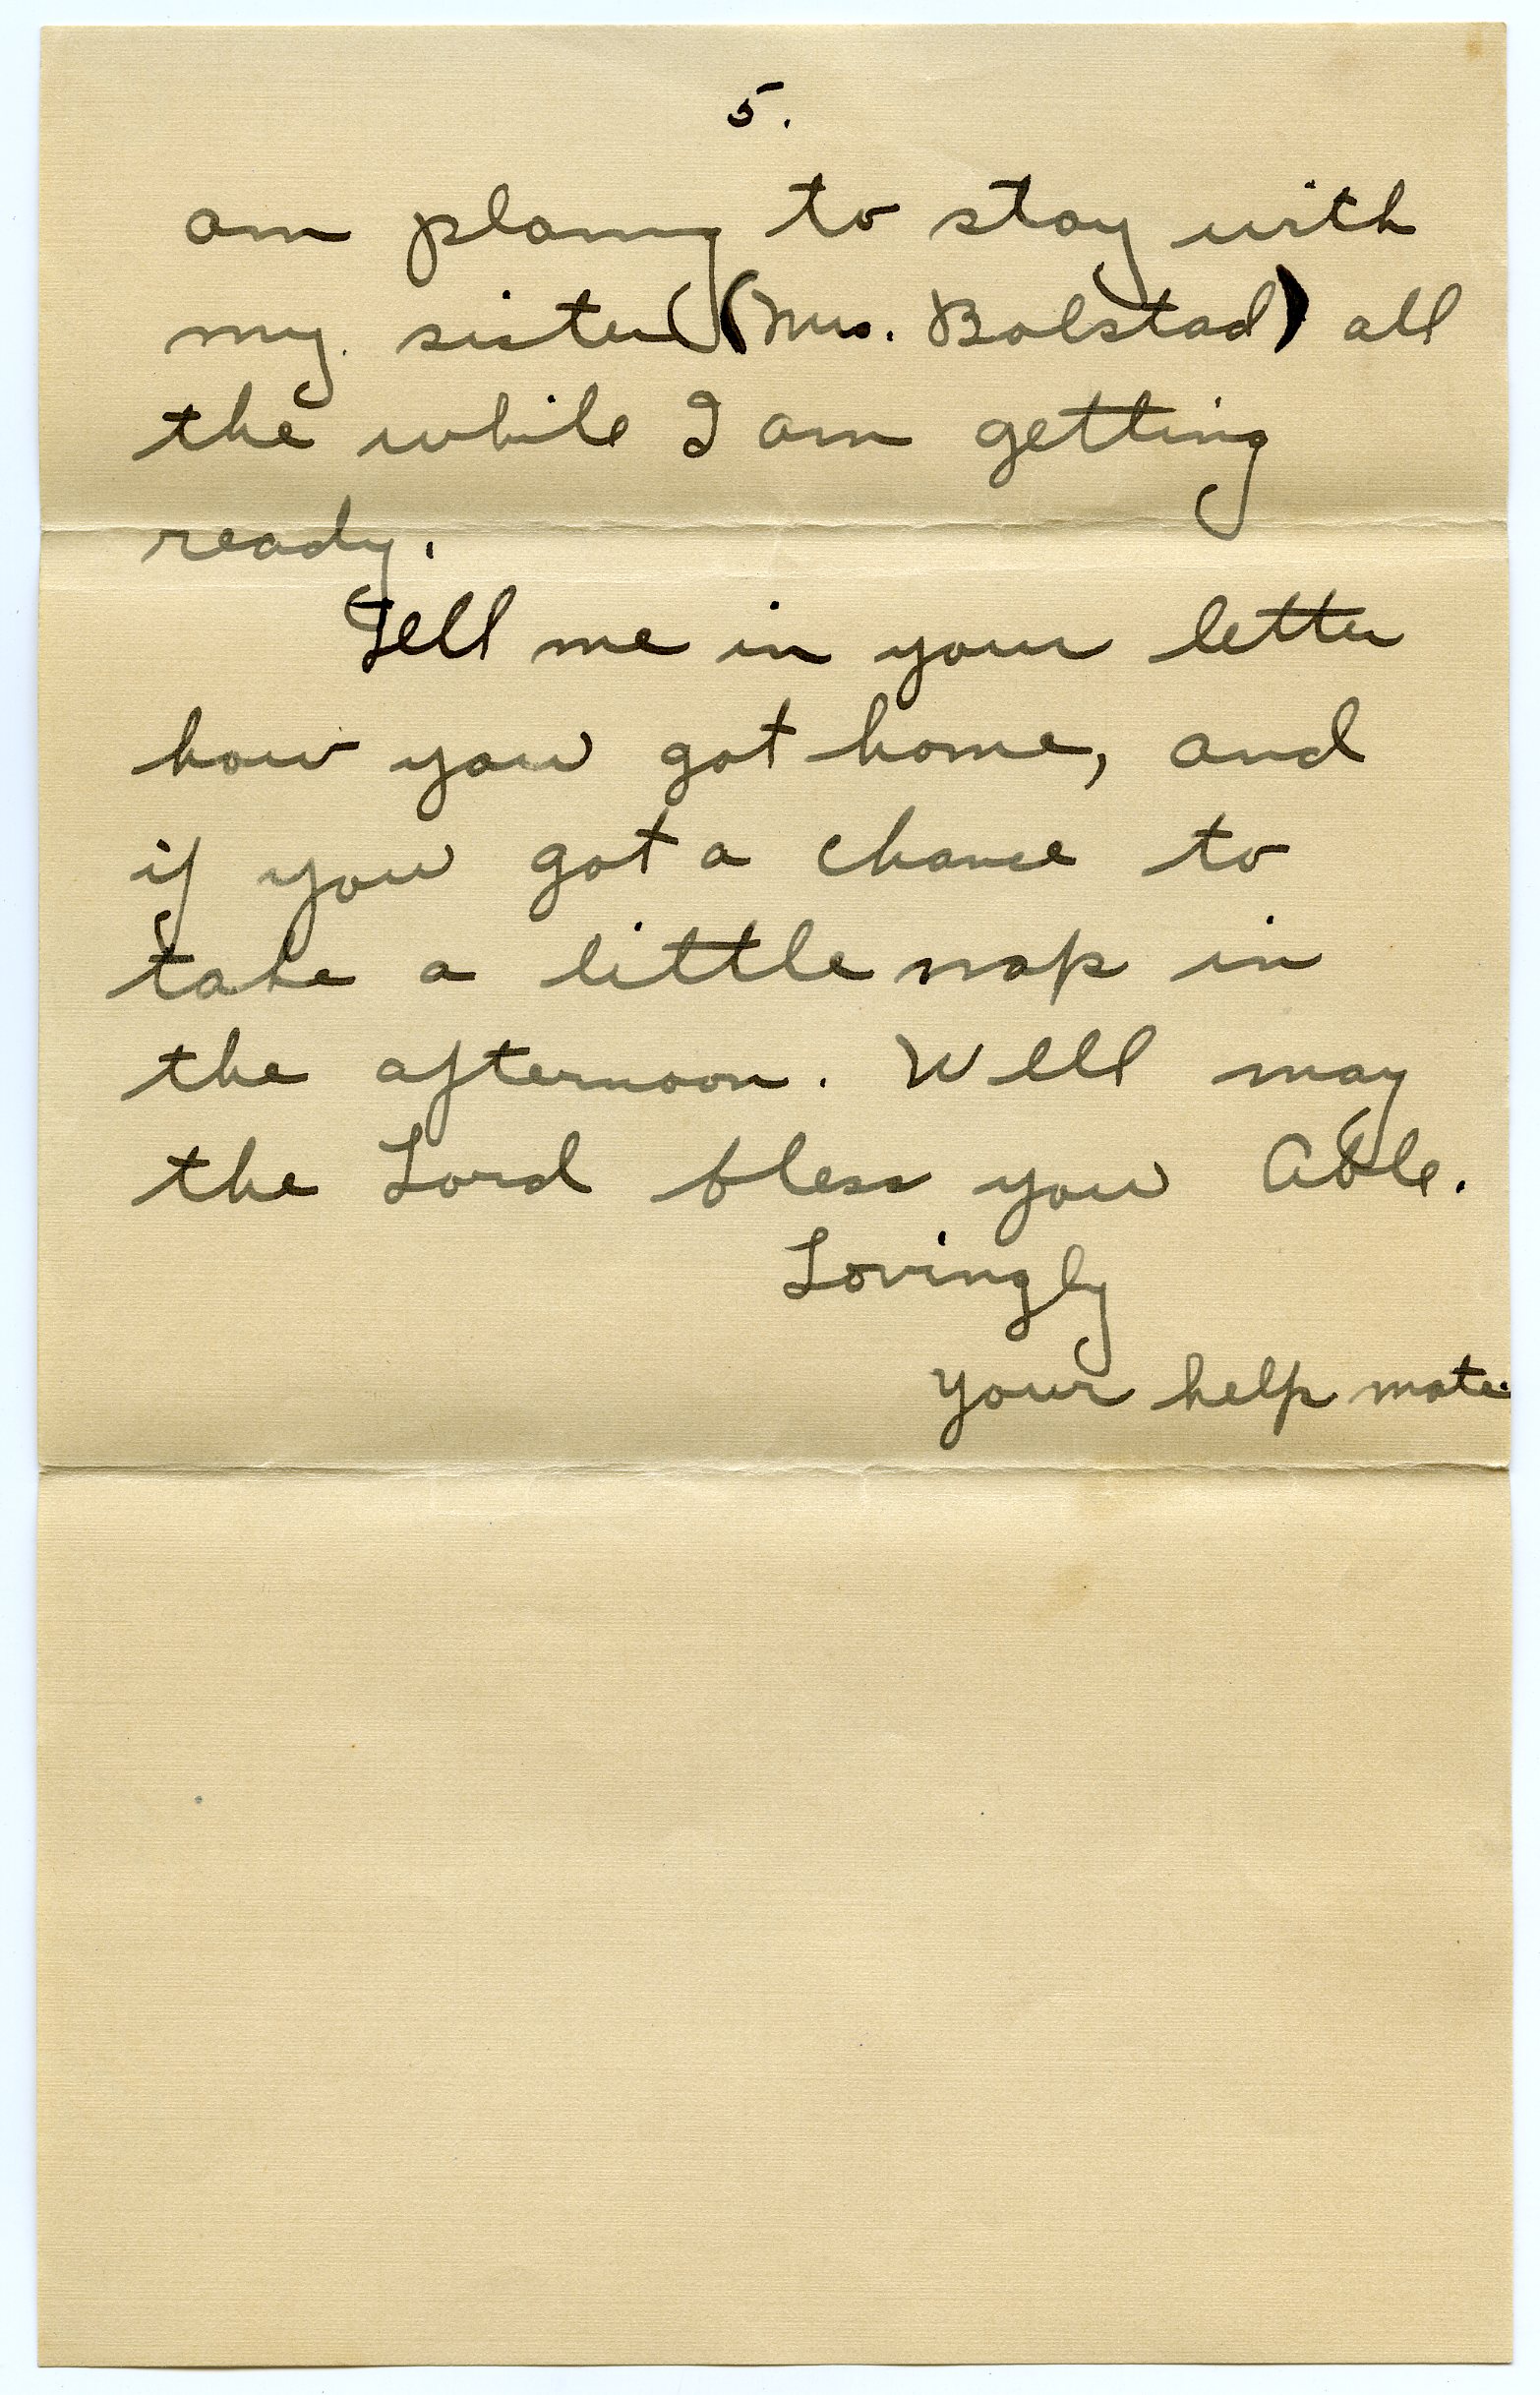 5.
am planng to stay with
my sister (Mrs. Bolstad) all
the while I am getting
ready.
Tell me in your letter
how you got home, and
if you got a chance to
take a little nap in
the afternoon. Well may
the Lord bless you Able.
Lovingly
your help mate.